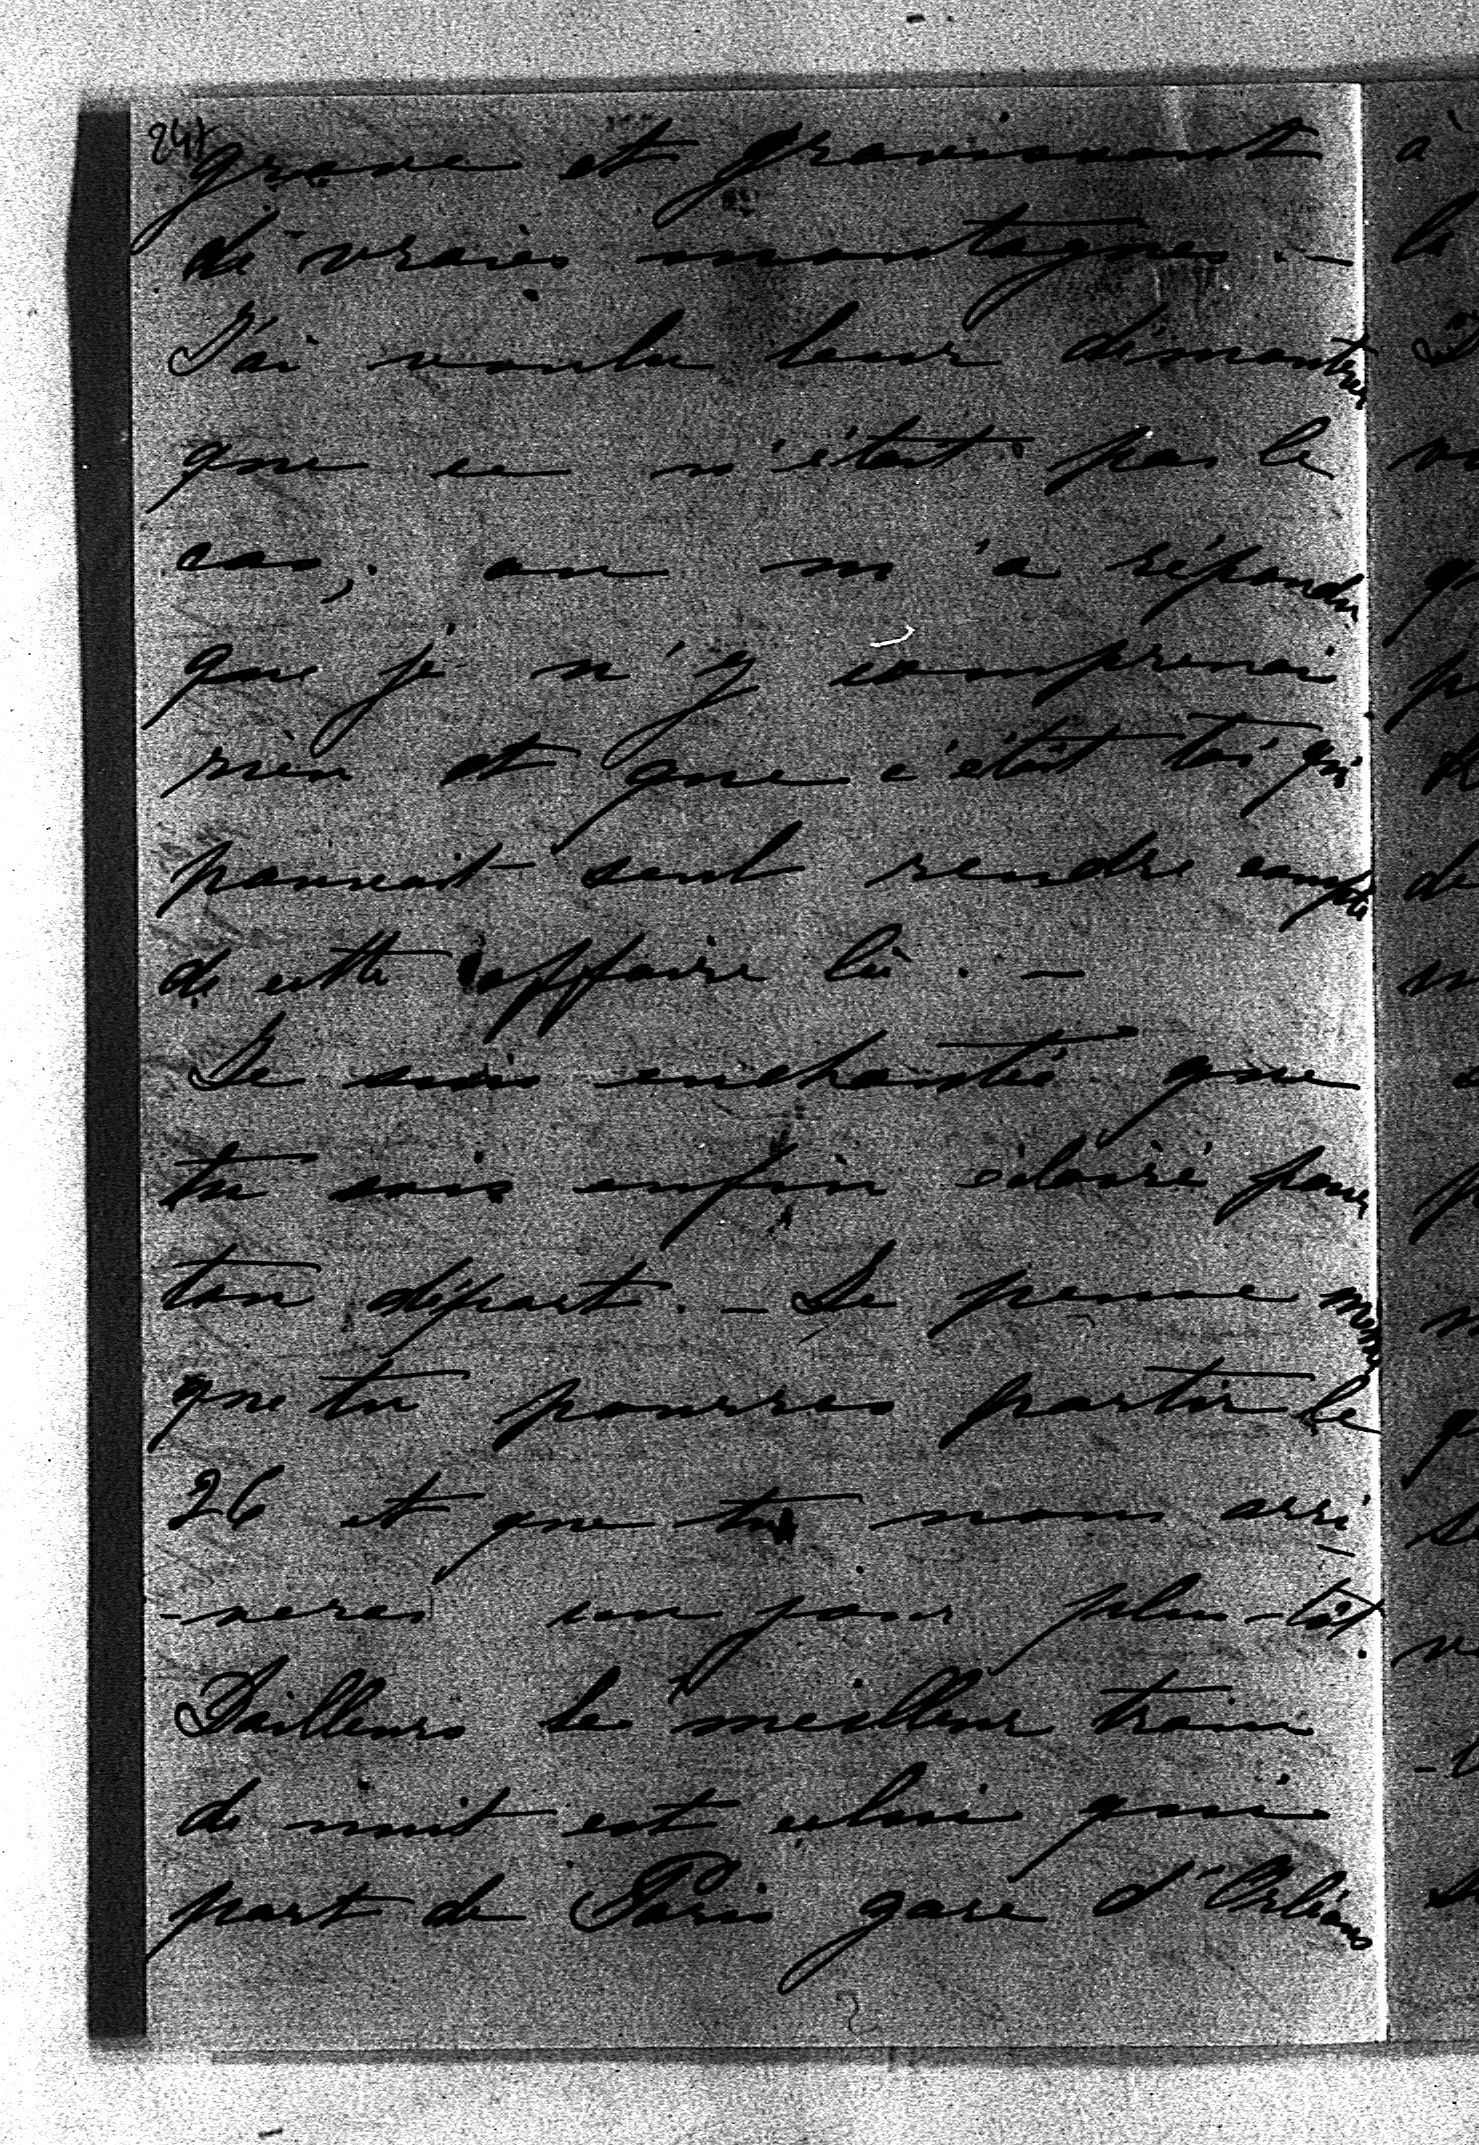 247
grave et gravissant
de vraies montagnes. —
J'ai voulu leur démontrer
que ce n'était pas le
cas, on m'a répondu
que je n'y comprenais
rien et que c'était toi qui
pouvait seul rendre compte
de cette affaire là. —
Je suis enchantée que
tu sois enfin éclairé pour
ton départ. — Je pense même
que tu pourras partir le
26 et que tu nous arri
-veras un jour plus-tôt.
D'ailleurs le meilleur train
de nuit est celui qui
part de Paris gare d'Orléans